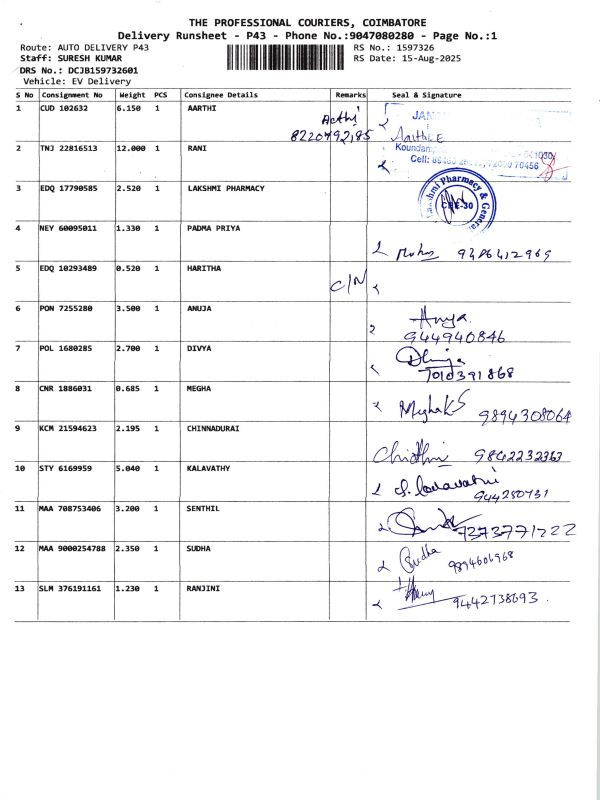 THE PROFESSIONAL COURIERS, COIMBATORE
Delivery Runsheet - P43 - Phone No.:9047080280 - Page No.:1
Route: AUTO DELIVERY P43 RS No.: 1597326
Staff: SURESH KUMAR RS Date: 15-Aug-2025
DRS No.: DCJB159732601
Vehicle: EV Delivery
S No Consignment No Weight PCS Consignee Details Remarks Seal & Signature
1 CUD 102632 6.150 1 AARTHI
8220792185
2 TNJ 22816513 12.000 1 RANI
Cell:
3 EDQ 17790585 2.520 1 LAKSHMI PHARMACY
Pharmacy & General
CBE-30
4 NEY 60095011 1.330 1 PADMA PRIYA
9486412969
5 EDQ 10293489 0.520 1 HARITHA C/N
6 PON 7255280 3.500 1 ANUJA
Anuja
944940846
7 POL 1680285 2.700 1 DIVYA
Divya
7010391868
8 CNR 1886031 0.685 1 MEGHA
Megha K S 9894308064
9 KCM 21594623 2.195 1 CHINNADURAI
9842232363
10 STY 6169959 5.040 1 KALAVATHY
944250731
11 MAA 708753406 3.200 1 SENTHIL
7373771222
12 MAA 9000254788 2.350 1 SUDHA
Sudha 9894606968
13 SLM 376191161 1.230 1 RANJINI
9442738693.